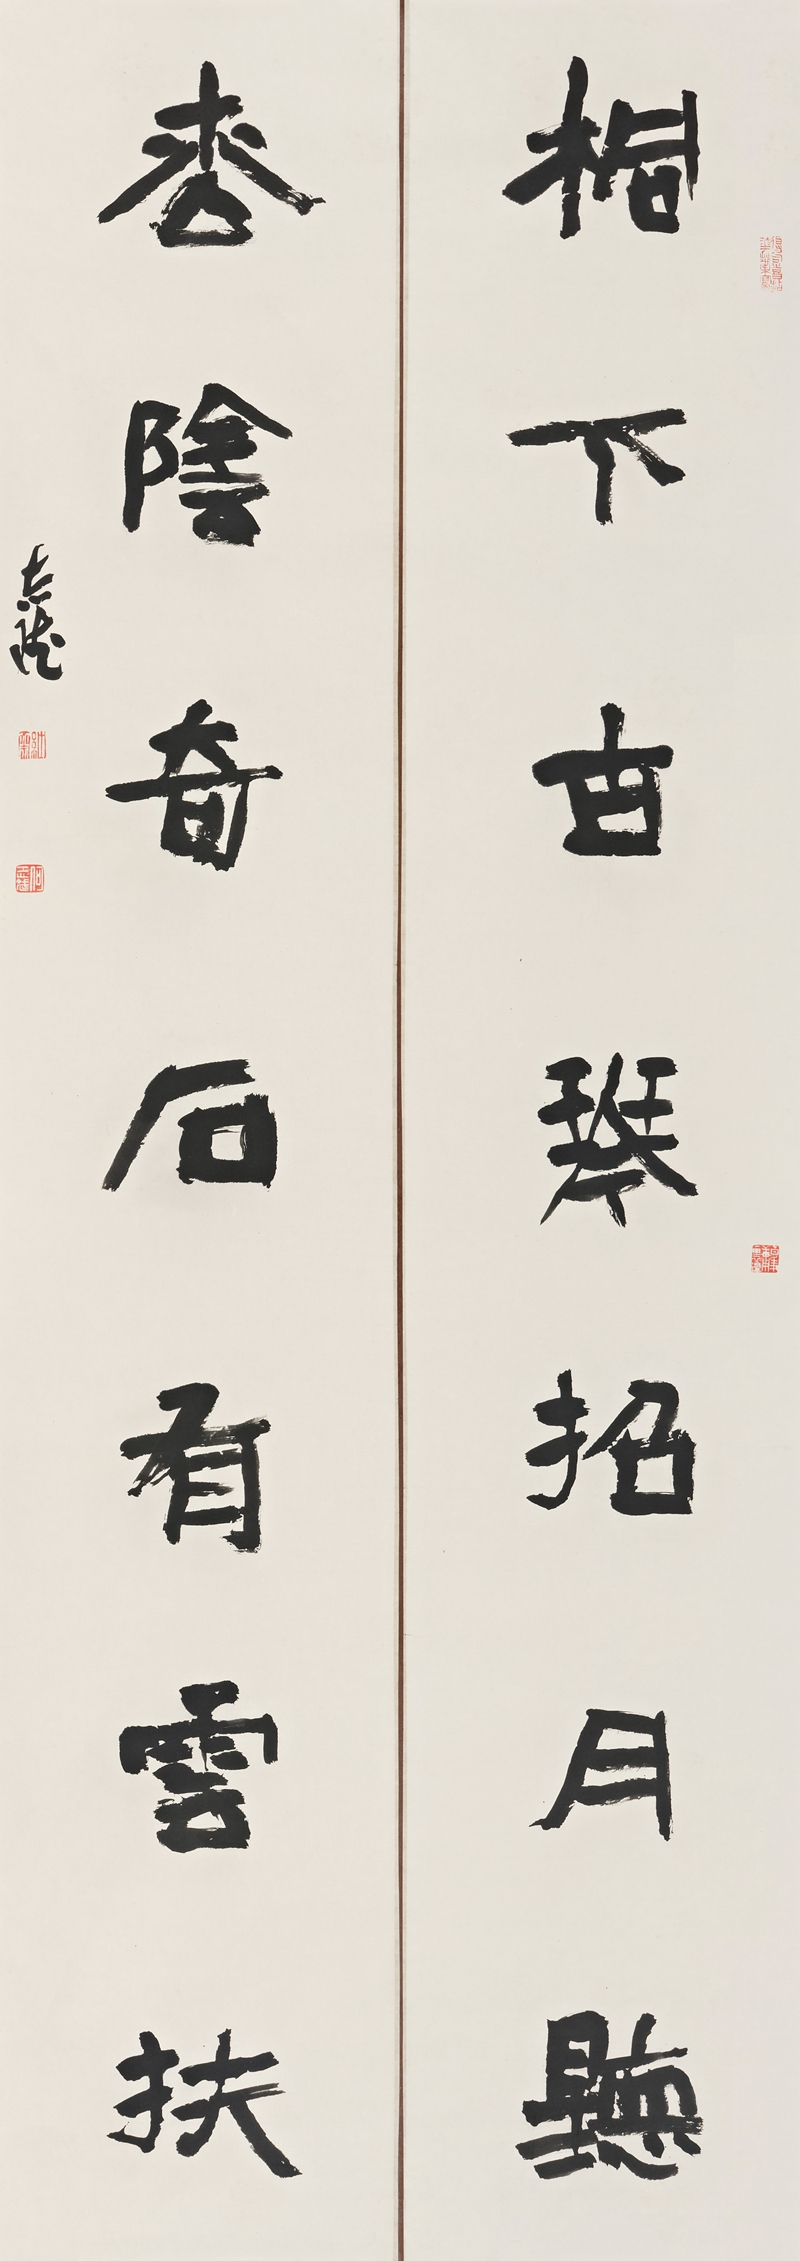 桐下古琴招月聽
枩陰奇石有雲扶